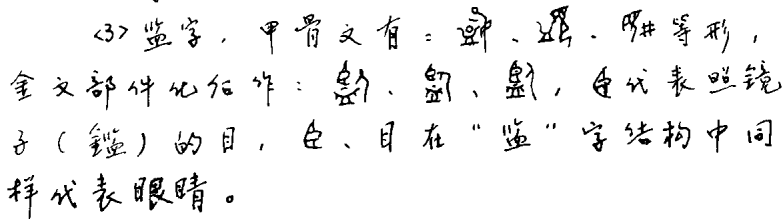 <3>监字，甲骨文有：、、等形，
金文部件化后作：、、，臣代表照镜
子（鑑）的目，臣、目在"监"字结构中同
样代表眼睛。